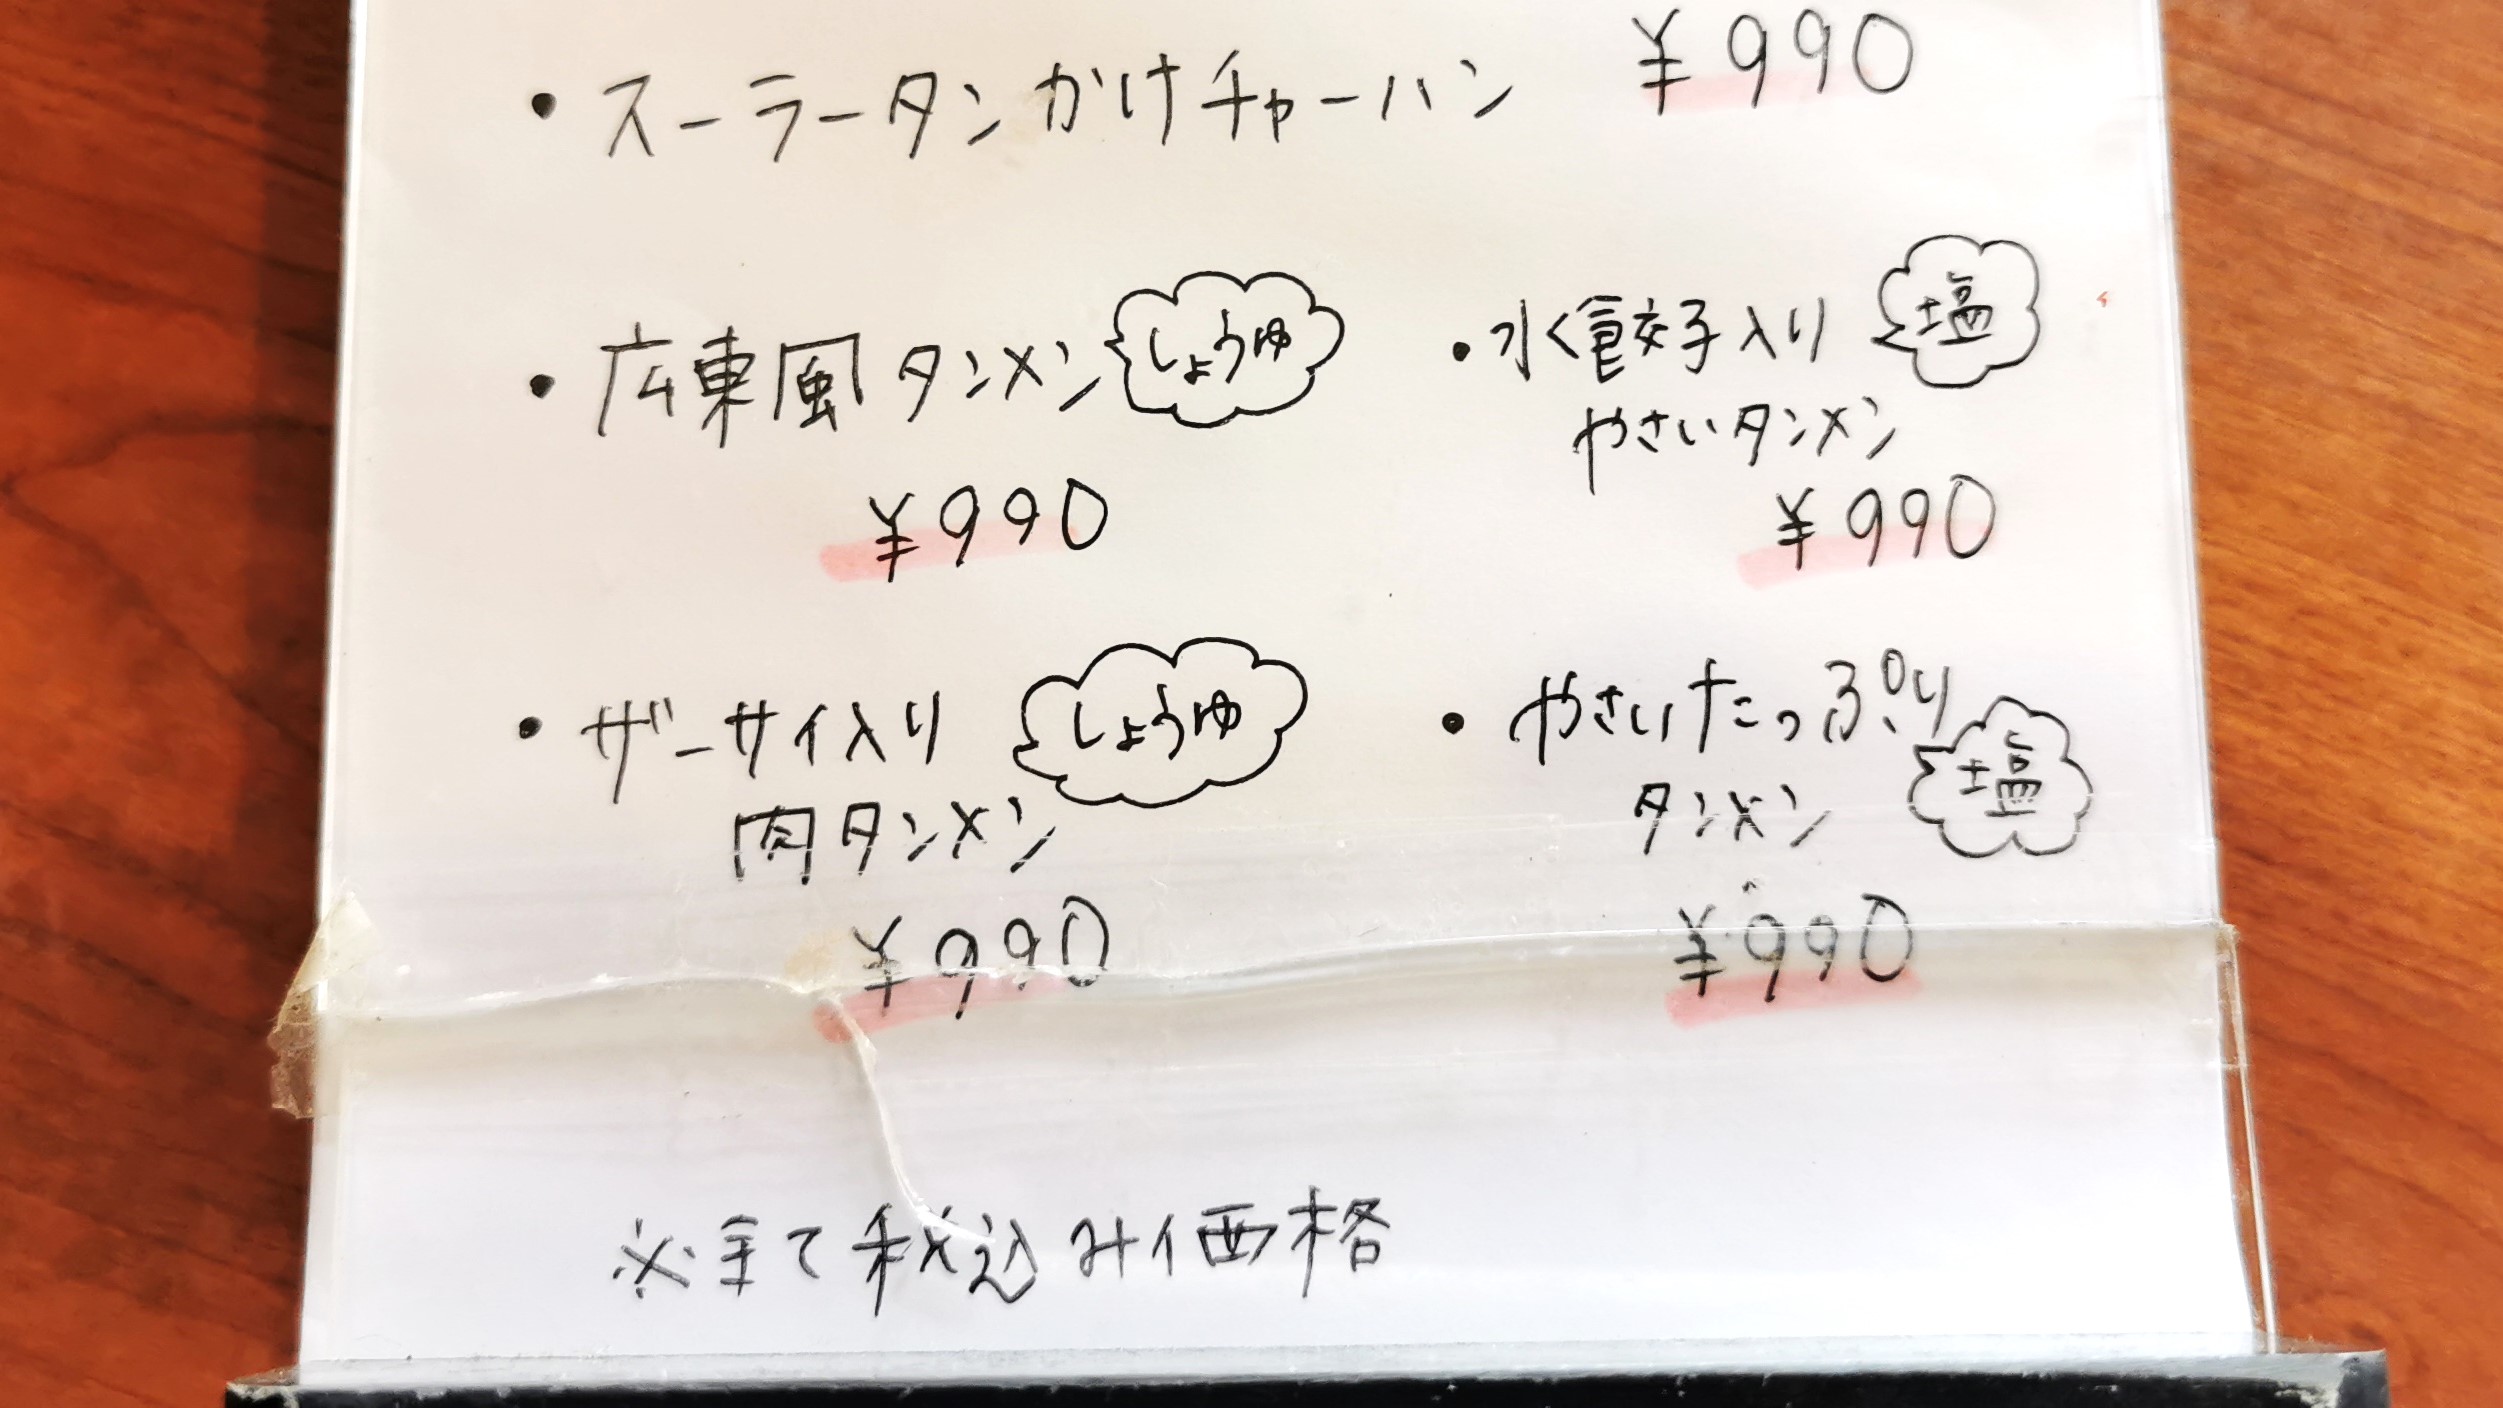 ・スーラータンかけチャーハン ¥990
・広東風タンメン しょうゆ
¥990
・水餃子入り 塩
やさいタンメン
¥990
・ザーサイ入り しょうゆ
肉タンメン
¥990
・やさいたっぷり
タンメン 塩
¥990
※全て税込み価格